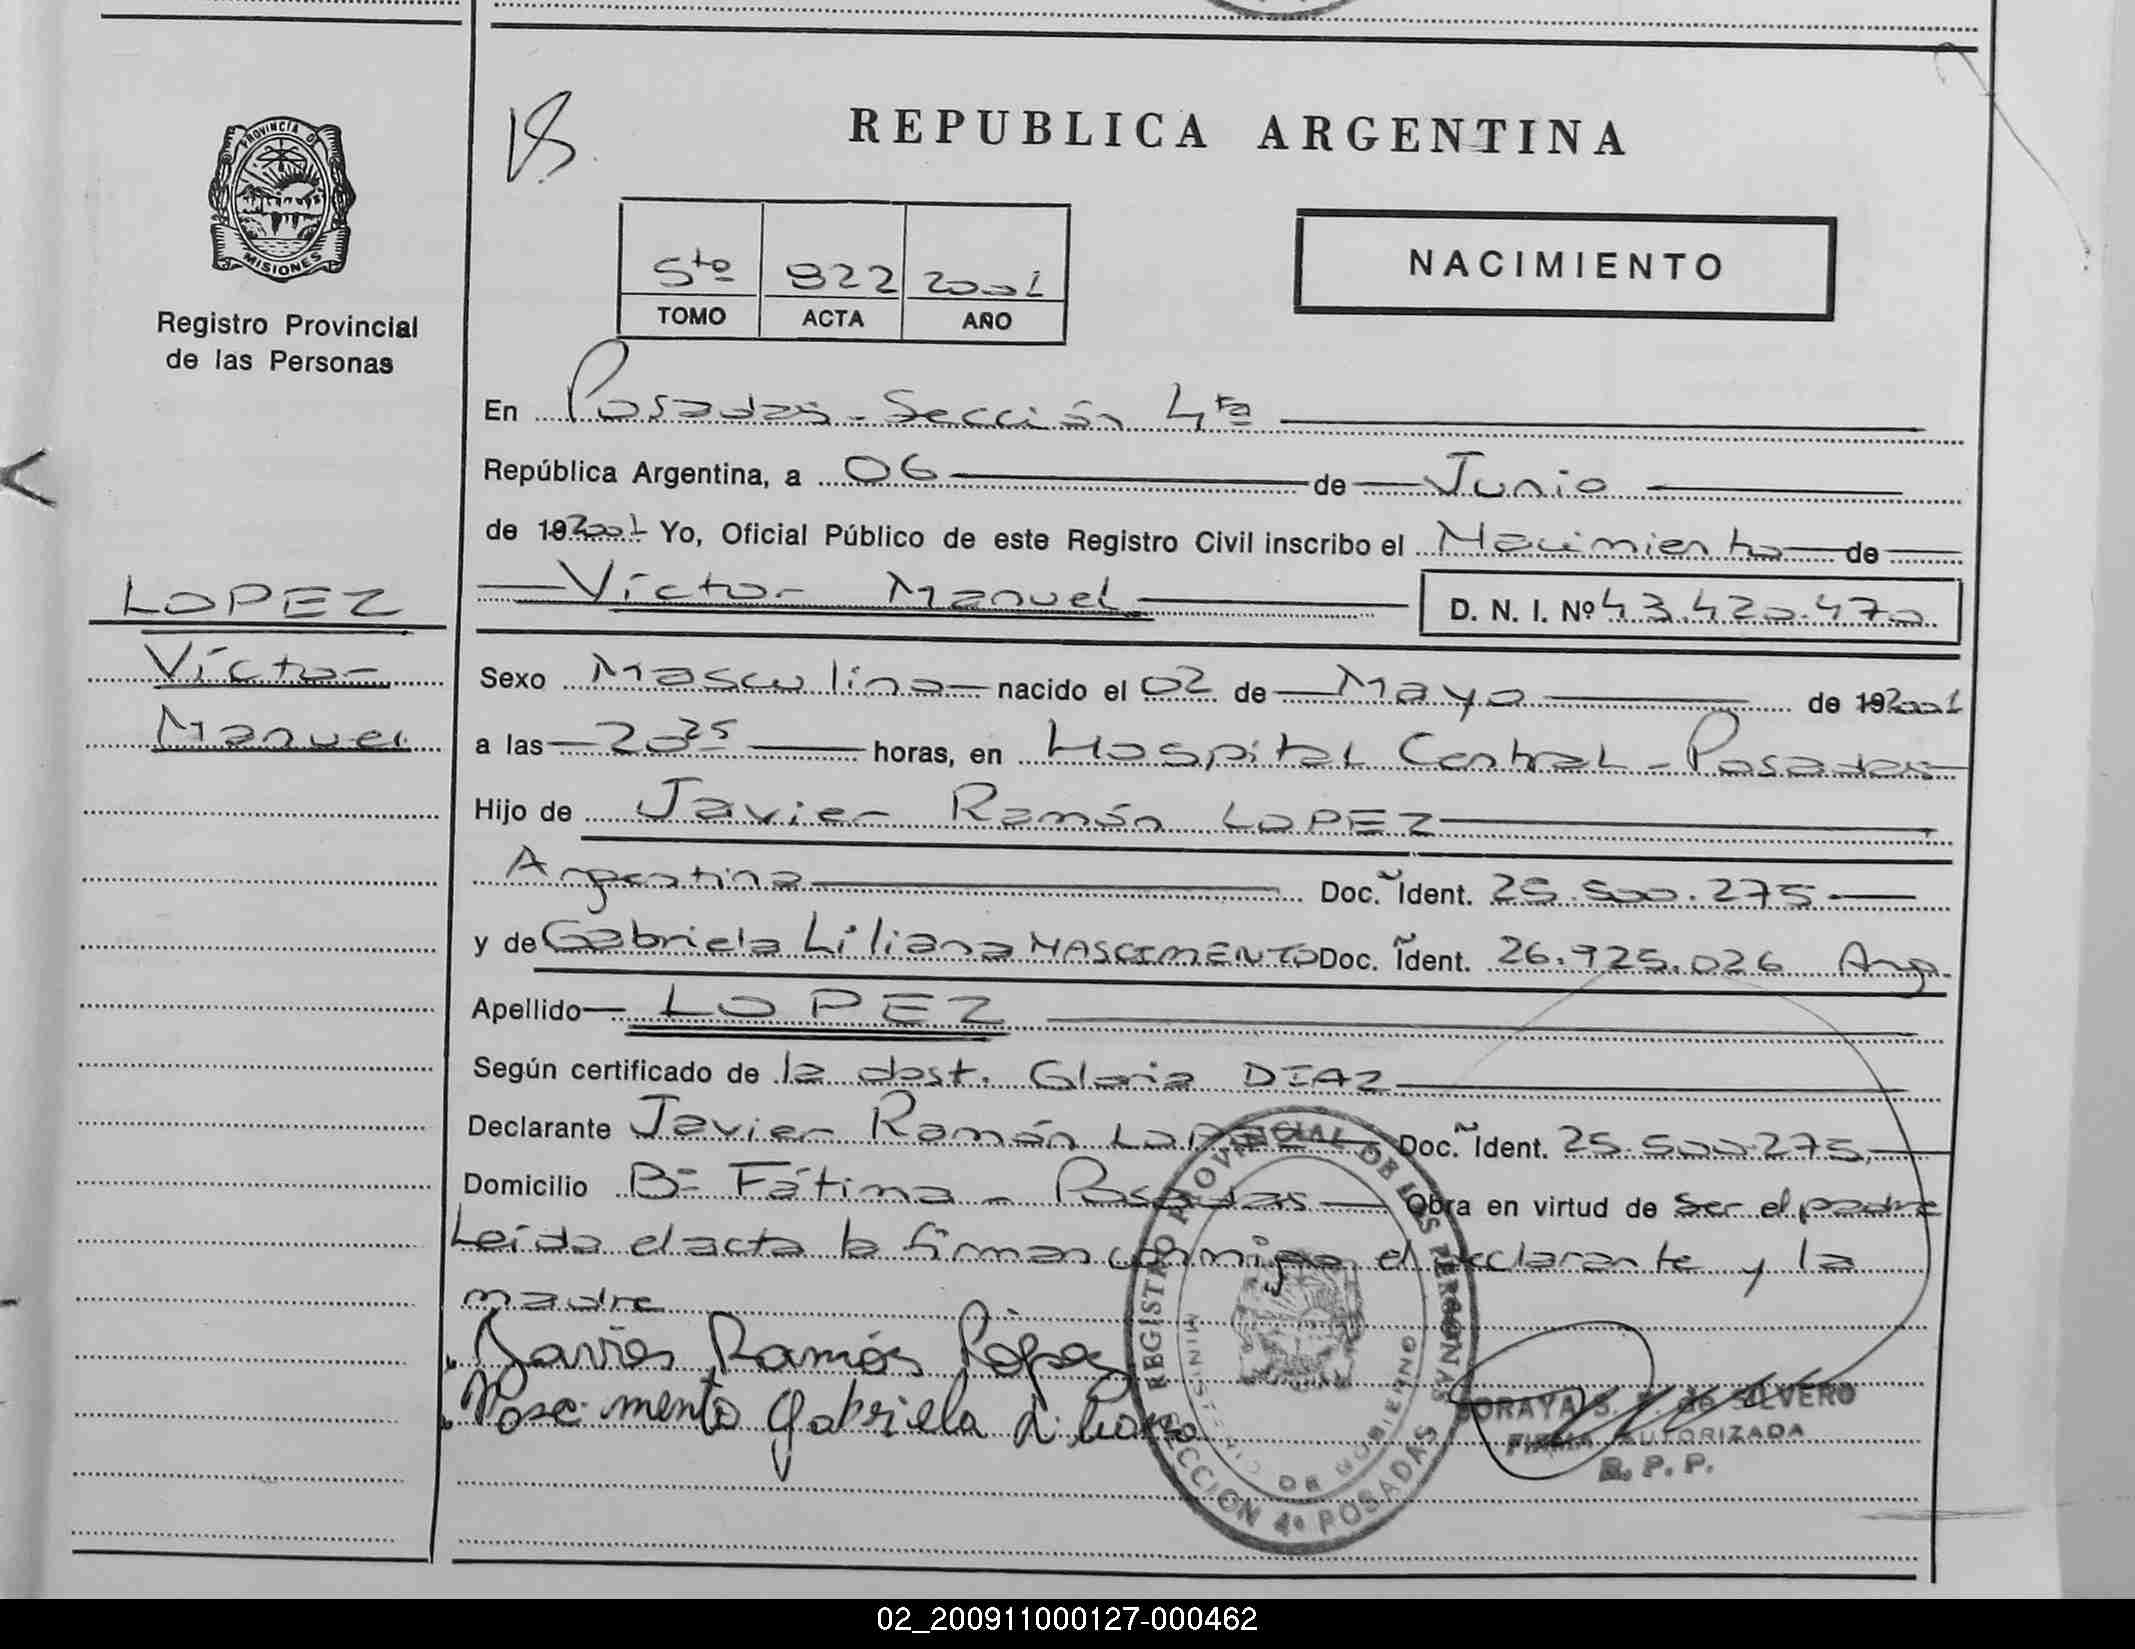 REPUBLICA ARGENTINA
PROVINCIA DE
MISIONES
Registro Provincial
de las Personas
5to 922 2001
TOMO ACTA AÑO
NACIMIENTO
En Posadas - Sección 4ta
República Argentina, a 06 de Junio
de 192001 Yo, Oficial Público de este Registro Civil inscribo el Nacimiento de
Víctor Manuel D. N. I. Nº 43.420.470
LOPEZ
Víctor
Manuel
Sexo Masculino nacido el 02 de Mayo de 192001
a las 20 25 horas, en Hospital Central - Posadas
Hijo de Javier Ramón LOPEZ
Argentina Doc. Ident. 25.500.275
y de Gabriela Liliana NASCIMENTO Doc. Ident. 26.925.026 Arg.
Apellido LOPEZ
Según certificado de la obst. Gloria DIAZ
Declarante Javier Ramón LOPEZ Doc. Ident. 25.500.275
Domicilio Bº Fátima - Posadas Obra en virtud de ser el padre
Leída el acta la firman conmigo el declarante y la
madre
Javier Ramón López
Nascimento Gabriela Liliana
REGISTRO PROVINCIAL DE LAS PERSONAS
MINISTERIO DE GOBIERNO
SECCION 4ª POSADAS
SORAYA S. de SILVERO
FIRMA AUTORIZADA
R. P. P.
02_200911000127-000462